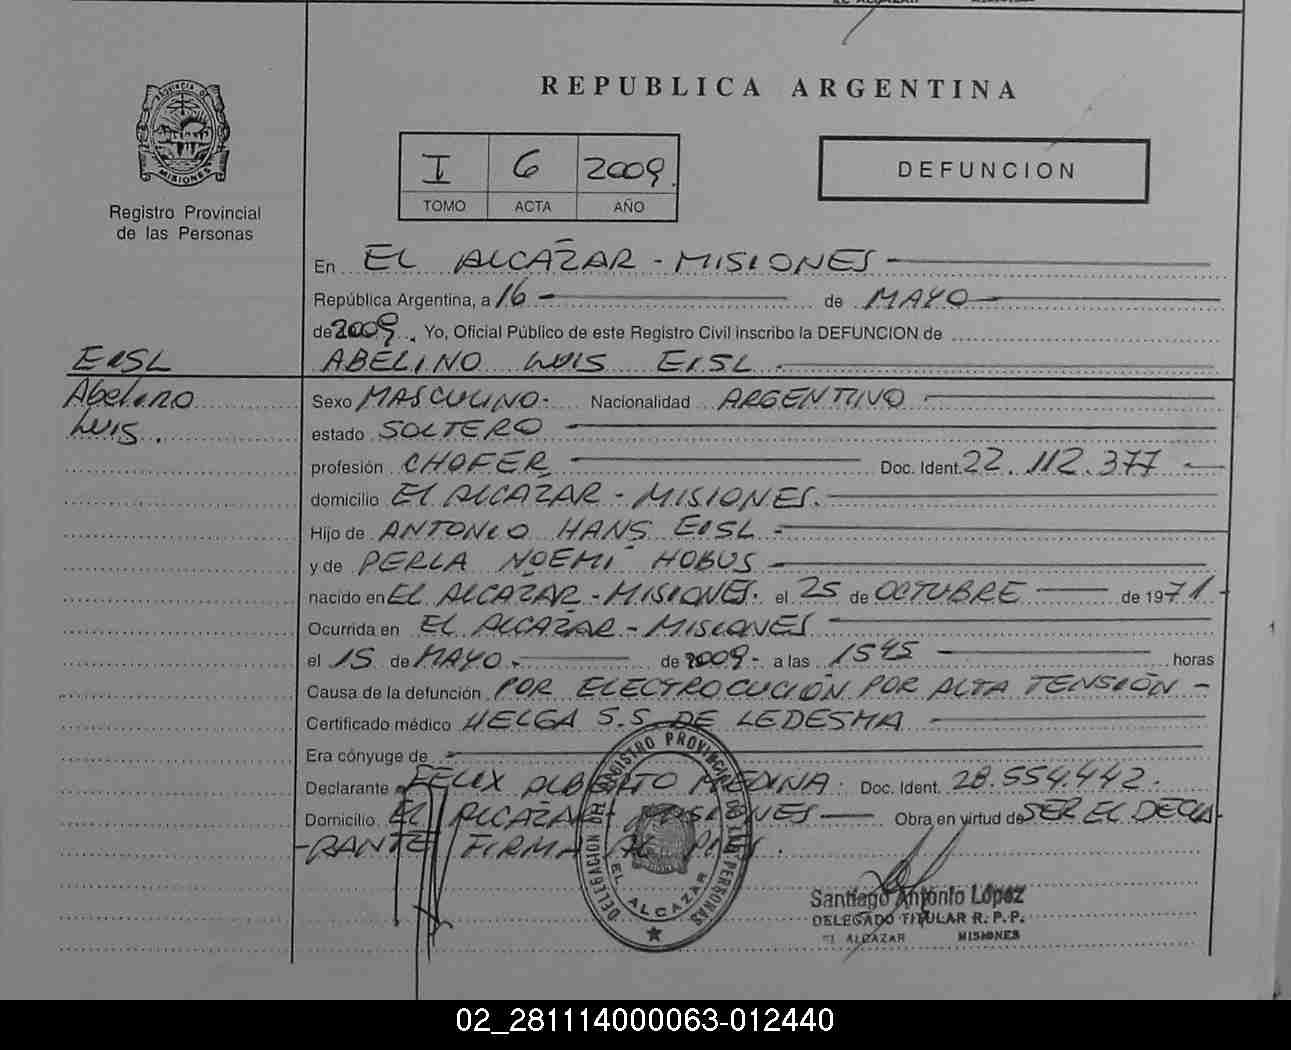 REPUBLICA ARGENTINA
PROVINCIA D
MISIONES
Registro Provincial
de las Personas
I 6 2009.
TOMO ACTA AÑO
DEFUNCION
En EL ALCAZAR - MISIONES
República Argentina, a 16 de MAYO
de 2009. Yo, Oficial Público de este Registro Civil inscribo la DEFUNCION de
ABELINO LUIS EISL.
EISL
Abelino
LUIS.
Sexo MASCULINO. Nacionalidad ARGENTINO
estado SOLTERO
profesión CHOFER Doc. Ident. 22.112.377
domicilio EL ALCAZAR - MISIONES.
Hijo de ANTONIO HANS EISL
y de PERLA NOEMI HOBUS
nacido en EL ALCAZAR - MISIONES. el 25 de OCTUBRE de 1971-
Ocurrida en EL ALCAZAR - MISIONES
el 15 de MAYO. de 2009- a las 1545 horas
Causa de la defunción POR ELECTROCUCIÓN POR ALTA TENSIÓN -
Certificado médico HELGA S.S. DE LEDESMA
Era cónyuge de
Declarante FELIX ALBERTO MEDINA. Doc. Ident. 28.554.442.
Domicilio EL ALCAZAR - MISIONES Obra en virtud de SER EL DECLA-
-RANTE FIRMA AL PIE.
DELEGACION DEL REGISTRO PROVINCIAL DE LAS PERSONAS
EL ALCAZAR
Santiago Antonio López
DELEGADO TITULAR R. P. P.
EL ALCAZAR MISIONES
02_281114000063-012440